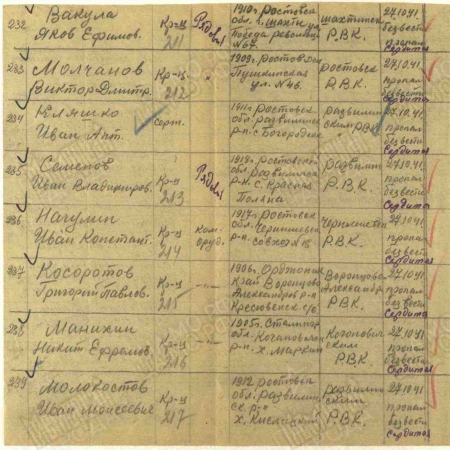 232
Вакула
Яков Ефимов.
Кр-ц
211
Рядовой
1910г. Ростовск.
обл. г. Шахты ул.
победа революции
№67.
Шахтинск
Р.В.К.
27.10.41
безвести
пропал
Сердитой
233
Молчанов
Виктор Дмитр.
Кр-ц.
212
"
1909г. Ростов Дон
Пушкинская
ул. №46.
Ростовск
Р.В.К.
27.10.41
пропал
безвести
Сердитой
234
Кляшко
Иван Ант.
серж.
1911г. Ростовск
обл. Развилинск
р-н. с Богородск
Развилин
ским РВК
27.10.41
пропал
безвест
Сердитой
235
Семенов
Иван Владимиров.
Кр-ц
213
Рядовой
1919г. Ростовской
обл. Развиленск
р-н. с. Красная
Поляна
Развилин
Р.В.К.
27.10.41
пропал
безвести
Сердитой
236
Начулин
Иван Констант.
Кр-ц
214
Ком.
оруд.
1917г. Ростовск
обл. Чернишевск
р-н. совхоз №18
Р.В.К.
27.10.41
пропал
безвести
Сердитой
237
Косоротов
Григорий Павлов.
Кр-ц
215
-"-
1906г. Орджоник
край Воронцово
Александров р-н
с/с.
Воронцово
Александр
РВК.
27.10.41
пропал
без вести
Сердитой
238
Манихин
Никит Ефремов.
Кр-ц
216
-"-
1905г. Сталинг
обл. Кагановичск
р-н.
х. Маркин
Каганович
ским
РВК.
27.10.41
пропал
безвест
Сердитой
239
Молокостов
Иван Моисеевич
Кр-ц
217
1912 Ростовск
обл. Развилин
ск. р-н
х. Кислицкий
Развилин
ским
Р.В.К.
27.10.41
пропал
безвести
Сердитой